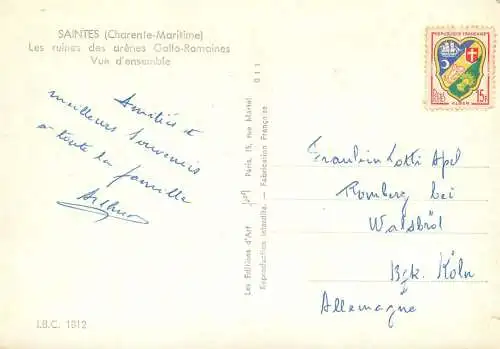 SAINTES (Charente-Maritime)
Les ruines des arènes Gallo-Romaines
Vue d'ensemble
REPUBLIQUE FRANÇAISE
15F
ALGER
Amitiés et
meilleurs souvenirs
à toute la famille
Les Editions d'Art Paris, 15, rue Martel 011
Reproduction interdite. - Fabrication Française
Fräulein Lotti Apel
Romberg bei
Walsbröl
Bzk. Köln
Allemagne
I.B.C. 1812